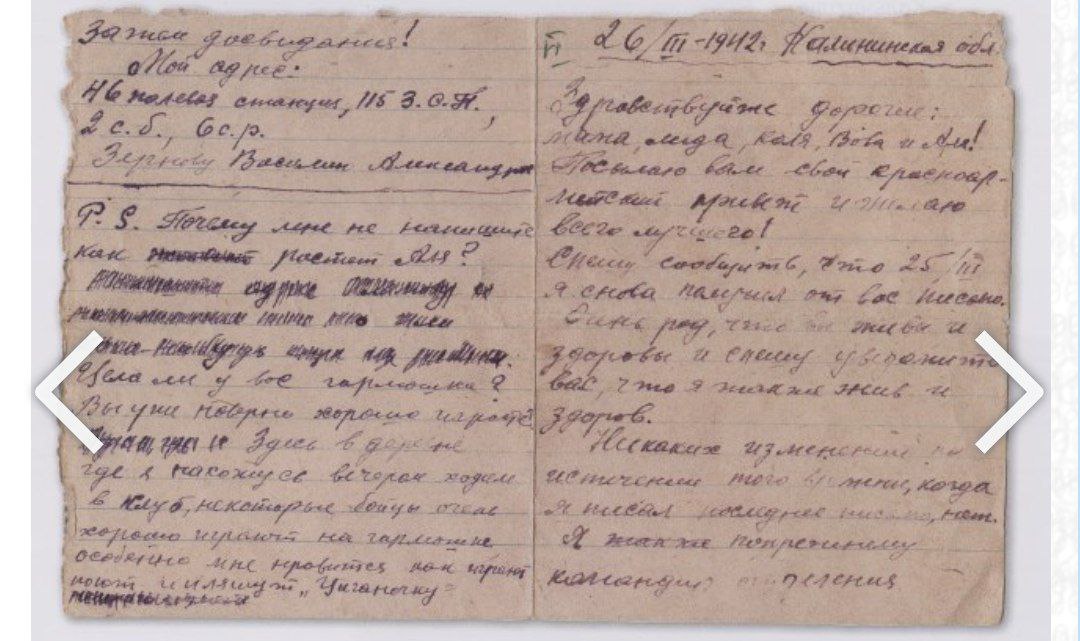 26/III-1942г Калининская обл.
Здравствуйте дорогие:
мама, Лида, Коля, Вова и Аля!
Посылаю вам свой красноар-
мейский привет и желаю
всего лучшего!
Спешу сообщить, что 25/III
я снова получил от вас письмо.
Очень рад, что вы живы и
здоровы и спешу уведомить
вас, что я также жив и
здоров.
Никаких изменений по
истечении того времени, когда
я писал последнее письмо, нет.
Я также попрежнему
командир отделения
Затем досвидания!
Мой адрес:
полевая станция, 115 З.С.П.,
2 с.б., 6 с.р.
Зернову Василию Александр
P.S. Почему мне не напишите
как растет Аля?
Цела ли у вас гармошка?
Вы уже наверно хорошо играете
Здесь в деревне
где я нахожусь вечером ходим
в клуб, некоторые бойцы очень
хорошо играют на гармошке
особенно мне нравится как играют
поют и пляшут „Цыганочку"